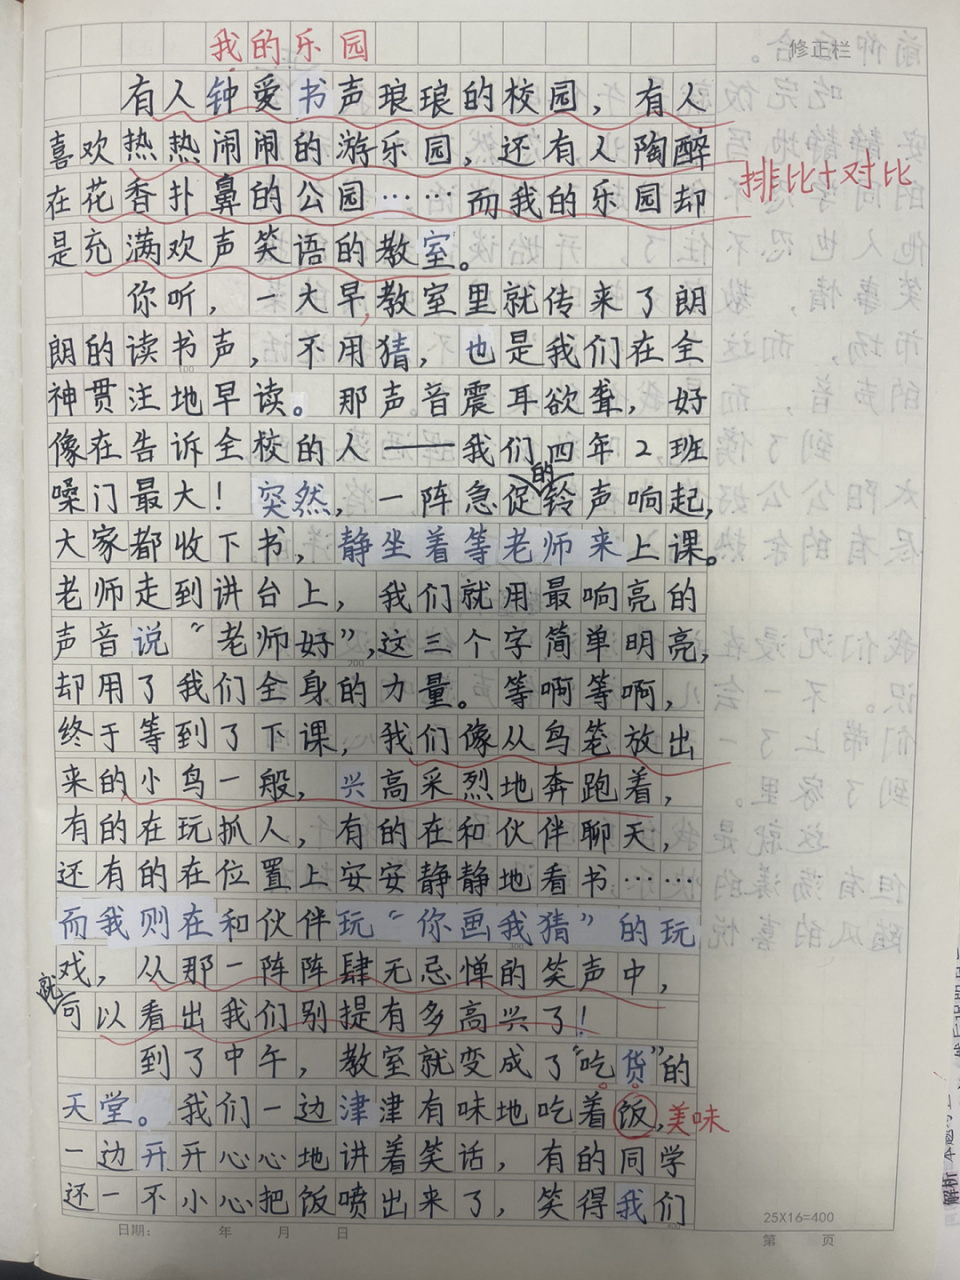 我的乐园
修正栏
有人钟爱书声琅琅的校园，有人
喜欢热热闹闹的游乐园，还有人陶醉
在花香扑鼻的公园……而我的乐园却
排比+对比
是充满欢声笑语的教室。
你听，一大早，教室里就传来了朗
朗的读书声，不用猜，也是我们在全
神贯注地早读。那声音震耳欲聋，好
像在告诉全校的人——我们四年2班
嗓门最大！突然，一阵急促的铃声响起，
大家都收下书，静坐着等老师来上课。
老师走到讲台上，我们就用最响亮的
声音说“老师好”，这三个字简单明亮，
却用了我们全身的力量。等啊等啊，
终于等到了下课，我们像从鸟笼放出
来的小鸟一般，兴高采烈地奔跑着，
有的在玩抓人，有的在和伙伴聊天，
还有的在位置上安安静静地看书……
而我则在和伙伴玩“你画我猜”的玩
戏，从那一阵阵肆无忌惮的笑声中，
就可以看出我们别提有多高兴了！
到了中午，教室就变成了“吃货”的
天堂。我们一边津津有味地吃着饭，美味
一边开开心心地讲着笑话，有的同学
还一不小心把饭喷出来了，笑得我们
日期： 年 月 日
25X16=400
第 页
解析